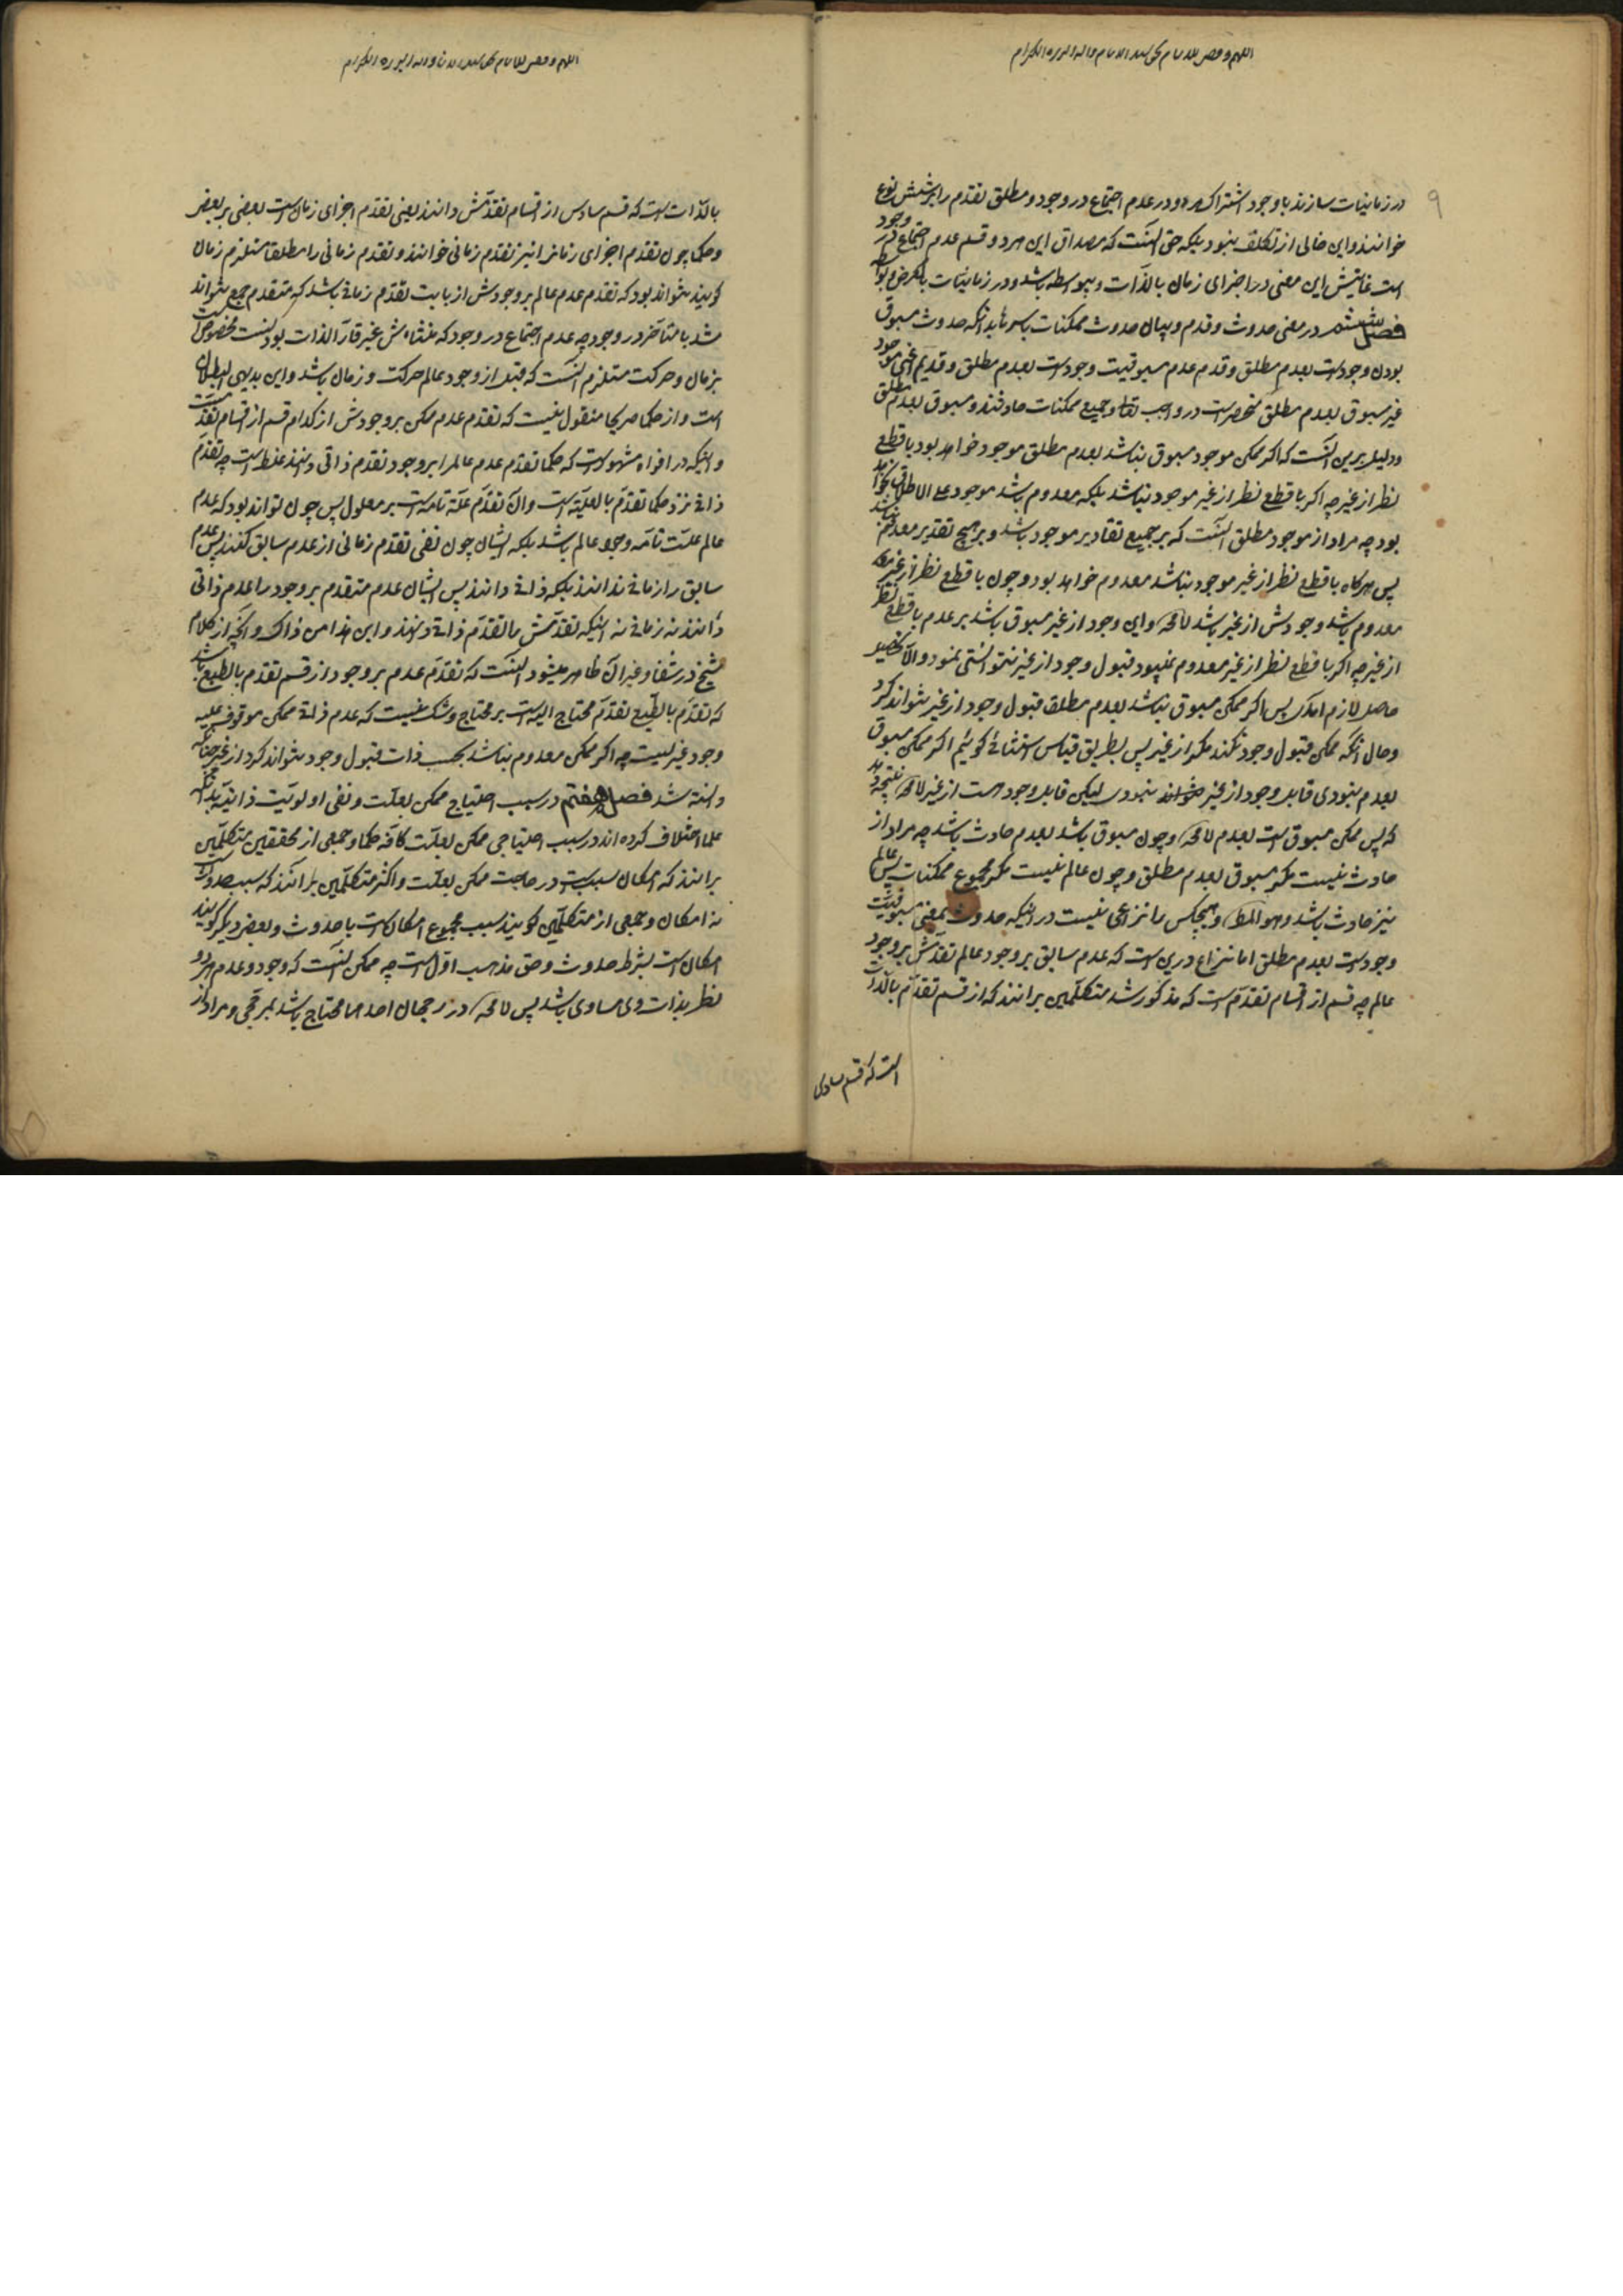 اللهم وقفنی للاتمام بحق سید الانام واله البررة الکرام
۹
در زمانیات سازند با وجود اشتراک هر دو در عدم اجتماع در وجود و مطلق تقدم را بر شش نوع
خوانند و این خالی از تکلف نبود بلکه حق آنست که مصداق این هر دو قسم عدم اجتماع در وجود
است غایتش این معنی در اجزای زمان بالذات و بیواسطه باشد و در زمانیات بالعرض و بواسطه
فصل ششم در معنی حدوث و قدم و بیان حدوث ممکنات باسرها بدانکه حدوث مسبوق
بودن وجودست بعدم مطلق و قدم عدم مسبوقیت وجودست بعدم مطلق و قدیم یعنی موجود
غیر مسبوق بعدم مطلق منحصرست در واجب تعالی و جمیع ممکنات حادثند و مسبوق بعدم مطلق
و دلیل برین آنست که اگر ممکن موجود مسبوق نباشد بعدم مطلق موجود خواهد بود با قطع
نظر از غیر چه اگر با قطع نظر از غیر موجود نباشد بلکه معدوم باشد موجود علی الاطلاق نخواهد
بود چه مراد از موجود مطلق آنست که بر جمیع تقادیر موجود باشد و بر هیچ تقدیر معدوم نباشد
پس هرگاه با قطع نظر از غیر موجود نباشد معدوم خواهد بود و چون با قطع نظر از غیر
معدوم باشد وجودش از غیر باشد لامحه و این وجود از غیر مسبوق باشد بر عدم با قطع نظر
از غیر چه اگر با قطع نظر از غیر معدوم نمیبود قبول وجود از غیر نتوانستی نمود و الا تحصیل
حاصل لازم آمدی پس اگر ممکن مسبوق نباشد بعدم مطلق قبول وجود از غیر نتواند کرد
و حال آنکه ممکن قبول وجود نکند مگر از غیر پس بطریق قیاس استثنائی گوئیم اگر ممکن مسبوق
بعدم نبودی قابل وجود از غیر نبودی لیکن قابل وجود هست از غیر لامحه نتیجه دهد
که پس ممکن مسبوق است بعدم لامحه و چون مسبوق باشد بعدم حادث باشد چه مراد از
حادث نیست مگر مسبوق بعدم مطلق و چون عالم نیست مگر مجموع ممکنات پس عالم
نیز حادث باشد و هو المط و هیچکس را نزاعی نیست در اینکه حدوث بمعنی مسبوقیت
وجودست بعدم مطلق اما نزاع درین است که عدم سابق بر وجود عالم تقدمش بر وجود
عالم چه قسم از اقسام تقدم است که مذکور شد متکلمین برانند که از قسم تقدم بالذات
است که قسم سادس
اللهم وقفنی للاتمام بحق سید الانام واله البررة الکرام
بالذات است که قسم سادس از اقسام تقدمش دانند یعنی تقدم اجزای زمان است بعضی بر بعض
و حکما چون تقدم اجزای زمانرا نیز تقدم زمانی خوانند و تقدم زمانی را مطلقا مستلزم زمان
گویند نتواند بود که تقدم عدم عالم بر وجودش از بابت تقدم زمانی باشد که متقدم جمع نتواند
شد با متاخر در وجود چه عدم اجتماع در وجود که منشاءش غیر قار الذات بودنست مخصوص است
بزمان و حرکت مستلزم آنست که قبل از وجود عالم حرکت و زمان باشد و این بدیهی البطلان
است و از حکما صریحا منقول نیست که تقدم عدم ممکن بر وجودش از کدام قسم از اقسام تقدمست
و اینکه در افواه مشهورست که حکما تقدم عدم عالم را بر وجود تقدم ذاتی دانند غلط است چه تقدم
ذاتی نزد حکما تقدم بالعلیة است و آن تقدم علة تامه است بر معلول پس چون تواند بود که عدم
عالم علت تامه وجود عالم باشد بلکه ایشان چون نفی تقدم زمانی از عدم سابق کنند پس عدم
سابق را زمانی ندانند بلکه ذاتی دانند پس ایشان عدم متقدم بر وجود را عدم ذاتی
دانند نه زمانی نه اینکه تقدمش را تقدم ذاتی دانند و این هذا من ذاک و آنچه از کلام
شیخ در شفا و غیر آن ظاهر میشود آنست که تقدم عدم بر وجود از قسم تقدم بالطبع باشد
که تقدم بالطبع تقدم محتاج الیه است بر محتاج و شک نیست که عدم ذاتی ممکن موقوف علیه
وجود غیریست چه اگر ممکن معدوم نباشد بحسب ذات قبول وجود نتواند کرد از غیر چنانکه
دانسته شد فصل هفتم در سبب احتیاج ممکن بعلت و نفی اولویت ذاتیه بدانکه
علما اختلاف کرده‌اند در سبب احتیاجی ممکن بعلت کافه حکما و جمعی از محققین متکلمین
برانند که امکان سببست در حاجت ممکن بعلت و اکثر متکلمین برانند که سبب حدوث است
نه امکان و جمعی از متکلمین گویند سبب مجموع امکان است با حدوث و بعضی دیگر گویند
امکان است بشرط حدوث و حق مذهب اول است چه ممکن آنست که وجود و عدم هر دو
نظر بذات وی مساوی باشد پس لامحه در رجحان احدهما محتاج باشد بمرجحی و مراد از